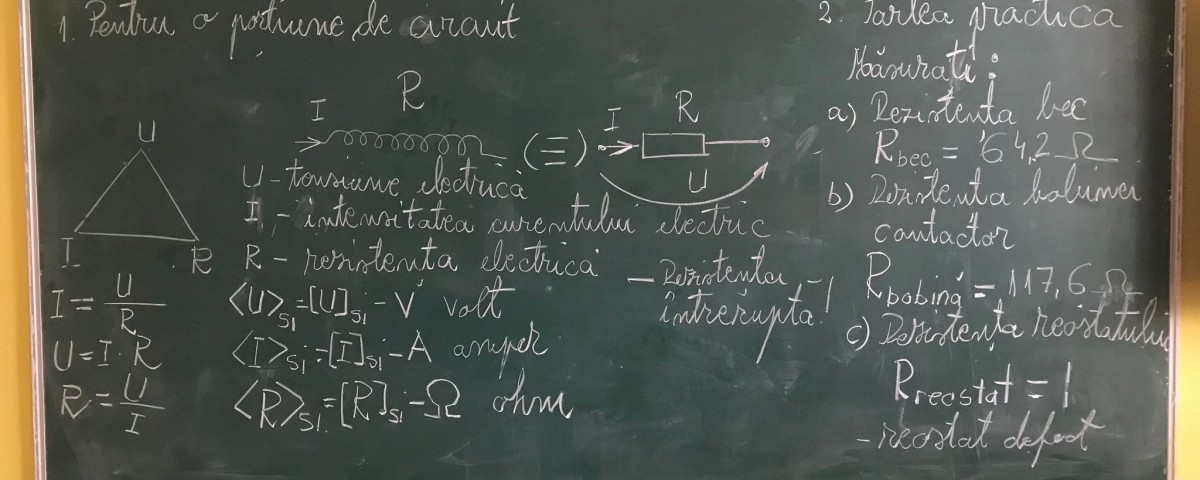 1. Pentru o porțiune de circuit
I R
(≡)
I R
U
U
I R
U - tensiune electrică
I - intensitatea curentului electric
R - rezistenta electrică
I = U / R
U = I · R
R = U / I
<U>SI = [U]SI - V volt
<I>SI = [I]SI - A amper
<R>SI = [R]SI - Ω ohm
- Rezistenta - 1
întreruptă!
2. Partea practica
Măsurați:
a) Rezistenta bec
Rbec = 64,2 Ω
b) Rezistenta bobinei
contactor
Rbobină = 117,6 Ω
c) Rezistența reostatului
Rreostat = 1
- reostat defect